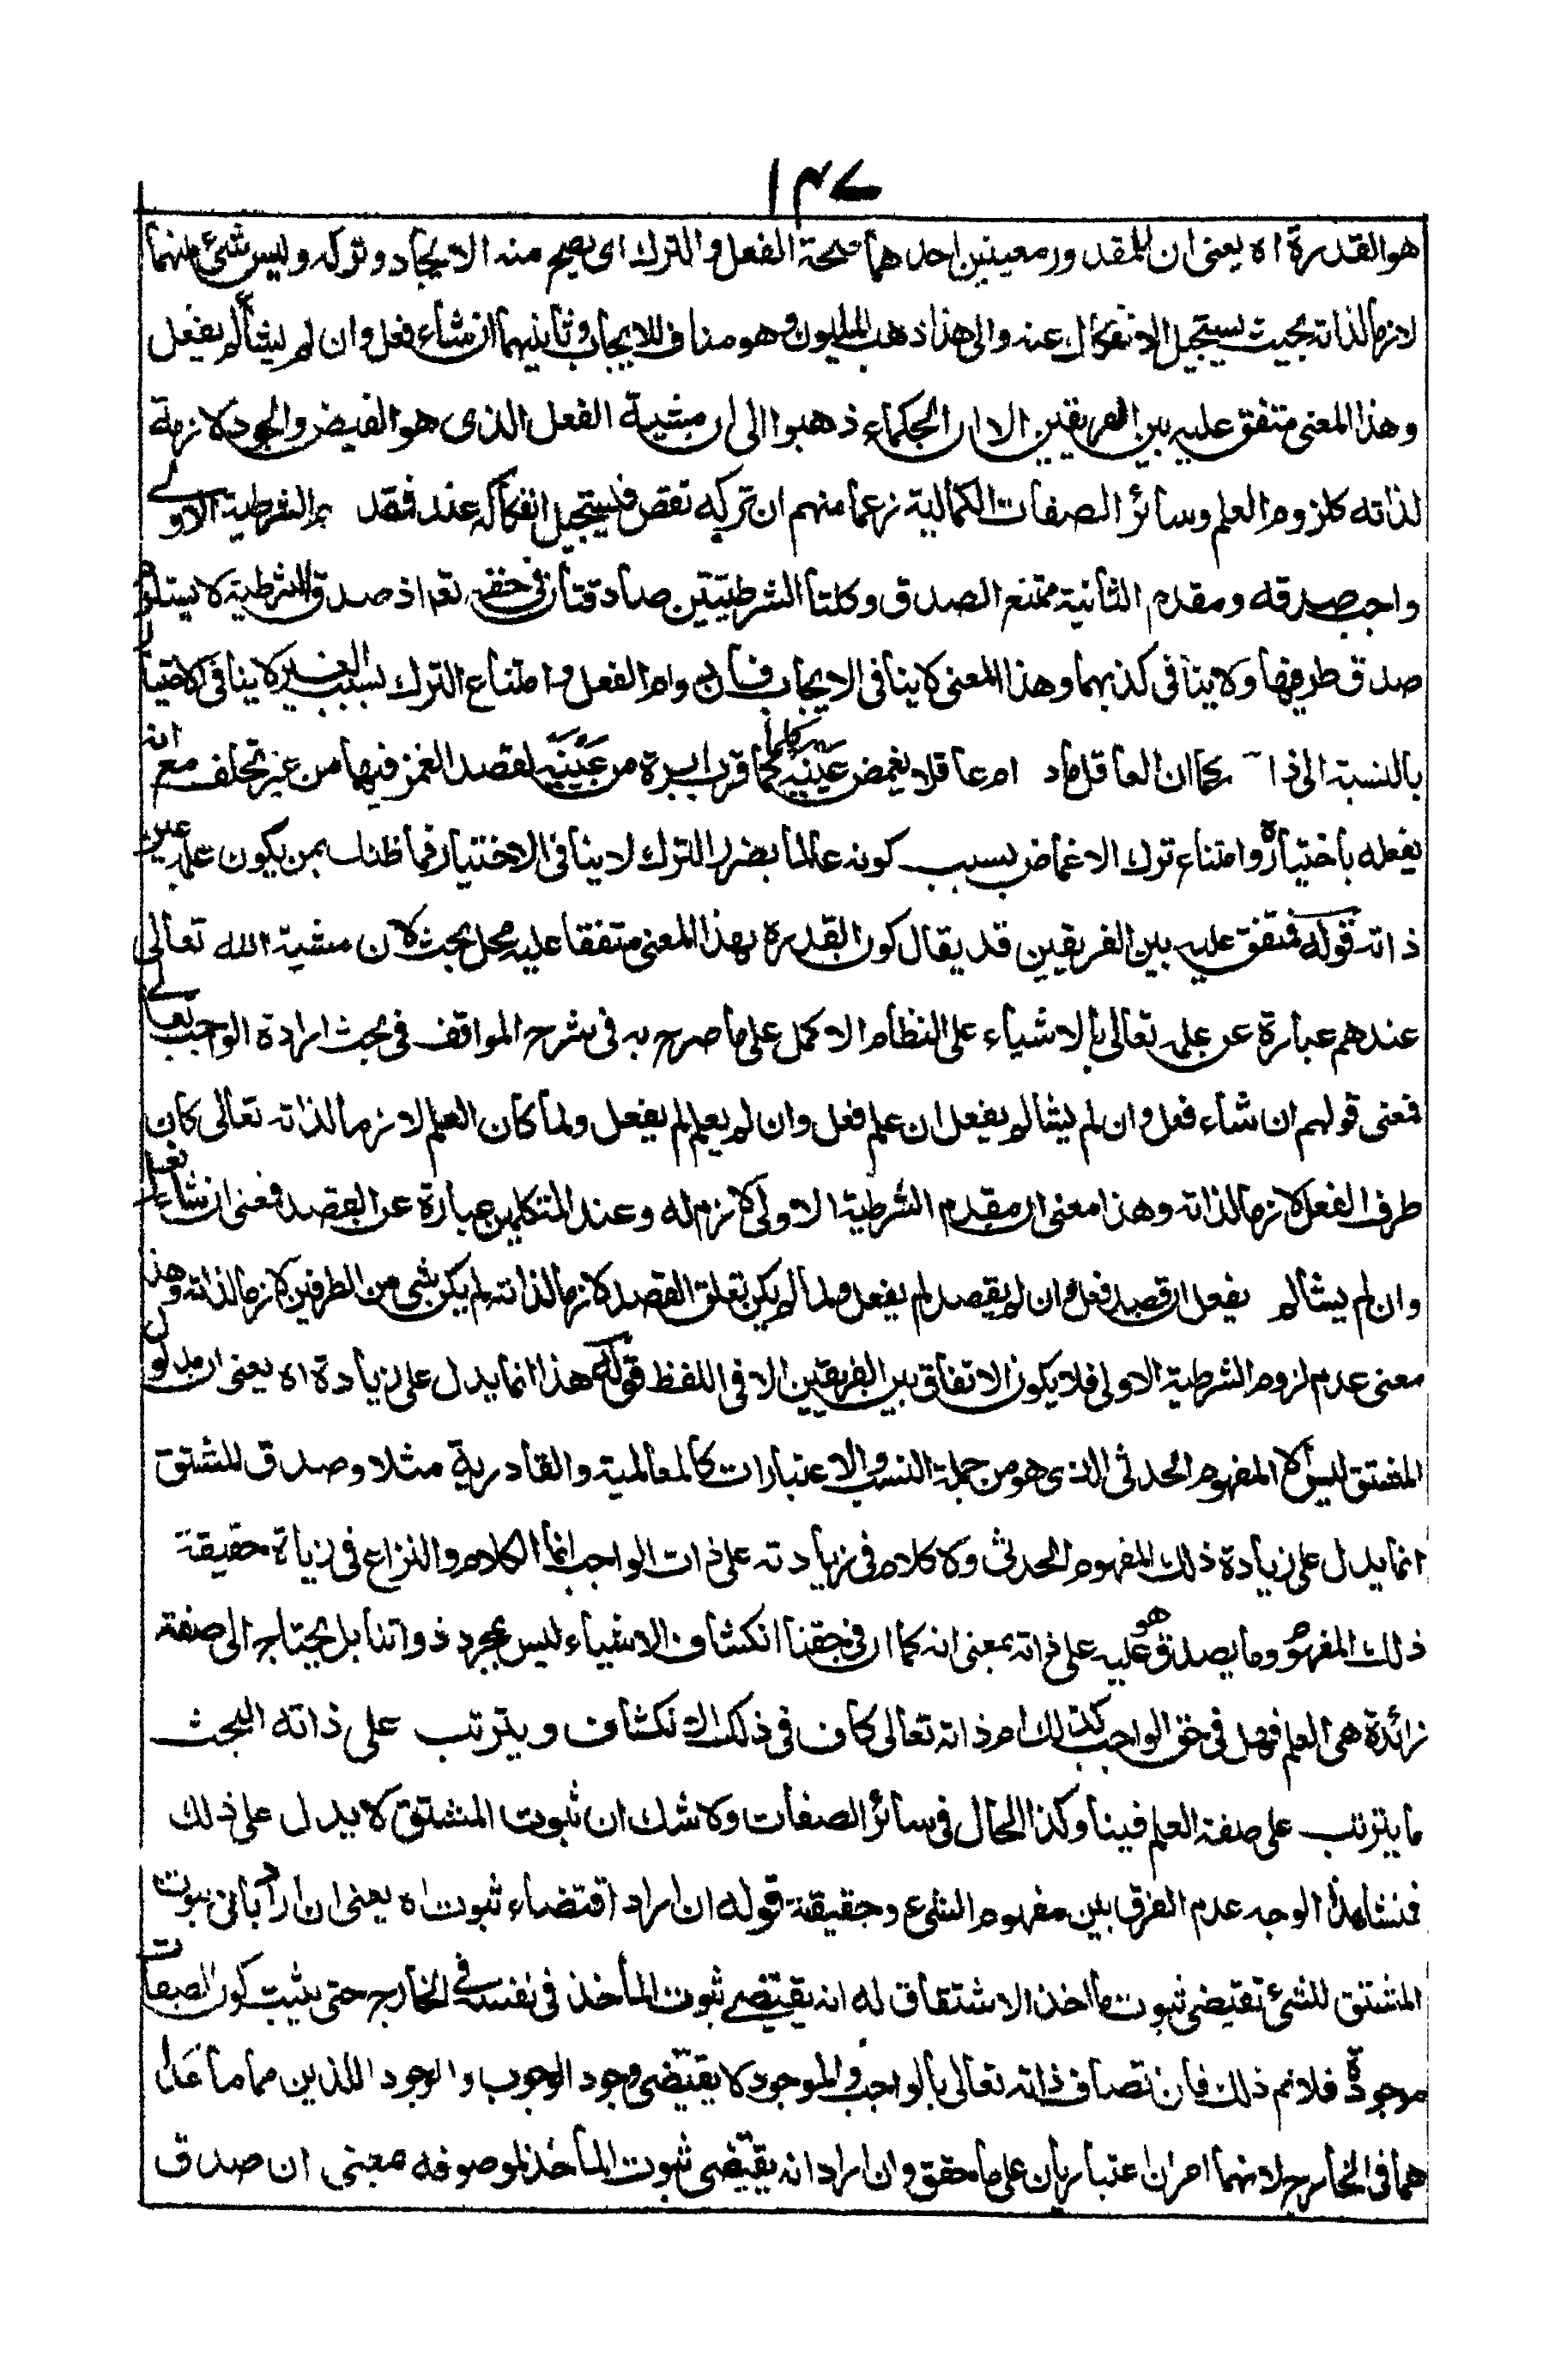 ١٣٧
هو القدرة اه يعني ان للمقدور معنيين احدهما صحة الفعل والترك اى يصح منه الايجاد وتركه وليس شئ منهما
لازما لذاته بحيث يستحيل الانفكاك عنه والى هذا ذهب المليون وهو مناف للايجاب وثانيهما ان شاء فعل وان لم يشألم يفعل
وهذا المعنى متفق عليه بين الفريقين الا ان الحكماء ذهبوا الى ان مشية الفعل الذى هو الفيض والجود لازمة
لذاته كلزوم العلم وسائر الصفات الكمالية زعما منهم ان تركه نقص فيستحيل انفكاكه عنه فمقدم الشرطية الاولى
واجب صدقه ومقدم الثانية ممتنع الصدق وكلتا الشرطيتين صادقتان في حقه تعم اذ صدق الشرطية لا يستلزم
صدق طرفيها ولا ينافى كذبهما وهذا المعنى لا ينافى الايجاب فان دوام الفعل و امتناع الترك بسبب الغير لا ينافى الاختيار
بالنسبة الى ذا كما ان العاقل ماد ام عاقلا يغمض عينيه كلما قرب ابرة من عينيه لقصد الغمز فيها من غير تخلف مع انه
يفعله باختياره وامتناع ترك الاغماض بسبب كونه عالما بضرر الترك لا ينافى الاختيار فما ظنك بمن يكون علمه عين
ذاته قوله متفق عليه بين الفريقين قد يقال كون القدرة بهذا المعنى متفقا عليه محل بحث لان مشية الله تعالى
عندهم عبارة عن علمه تعالى بالاشياء على النظام الاكمل على ما صرح به فى شرح المواقف فى بحث ارادة الواجب تعالى
فمعنى قولهم ان شاء فعل وان لم يشالم يفعل ان علم فعل وان لم يعلم لم يفعل ولما كان العلم لازما لذاته تعالى كان
طرف الفعل لازما لذاته وهذا معنى ان مقدم الشرطية الاولى لازم له وعند المتكلمين عبارة عن القصد فمعنى ان شاء فعل
وان لم يشألم يفعل ان قصد فعل وان لم يقصد لم يفعل ولما لم يكن تعلق القصد لازما لذاته لم يكن شى من الطرفين لازما لذاته وهذا
معنى عدم لزوم الشرطية الاولى فلا يكون الاتفاق بين الفريقين الا فى اللفظ قوله هذا انما يدل على زيادة اه يعنى ان مدلول
المشتق ليس الا المفهوم الحدثى الذى هو من جملة النسب والاعتبارات كالعالمية والقادرية مثلا وصدق المشتق
انما يدل على زيادة ذلك المفهوم الحدثى ولا كلام فى زيادته على ذات الواجب انما الكلام والنزاع فى زياة حقيقة
ذلك المفهوم وما يصدق هو عليه على ذاته بمعنى انه كما ان فى حقنا انكشاف الاشياء ليس بمجرد ذواتنا بل يحتاج الى صفة
زائدة هى العلم فهل فى حق الواجب كذلك ام ذاته تعالى كاف فى ذلك الانكشاف ويترتب على ذاته البحث
ما يترتب على صفة العلم فينا وكذا الحال فى سائر الصفات ولا شك ان ثبوت المشتق لا يدل على ذلك
فمنشا هذا الوجه عدم الفرق بين مفهوم الشىء وحقيقة قوله ان اراد اقتضاء ثبوت اه يعنى ان اراد بان ثبوت
المشتق للشئ تقتضى ثبوت مأخذ الاشتقاق له انه يقتضى ثبوت المأخذ فى نفسه فى الخارج حتى يثبت كون الصفات
موجودة فلا نم ذلك فان تصاف ذاته تعالى بالواجب والموجود لا يقتضى وجود الوجوب والوجود اللذين هما ماخذا
هما فى الخارج لانهما امران اعتباريان على ما حقق وان اراد انه يقتضى ثبوت المأخذ لموصوفه معنى ان صدق